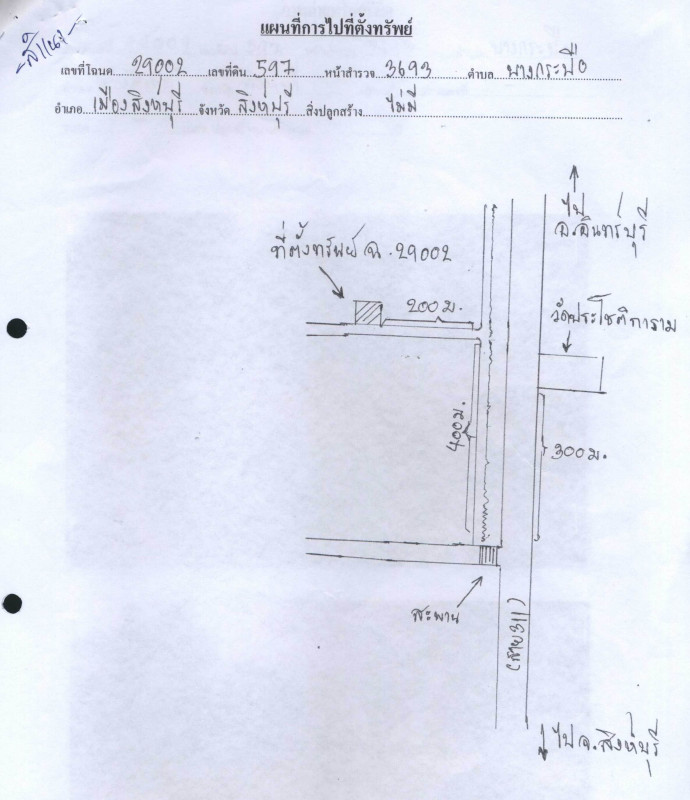 แผนที่การไปที่ตั้งทรัพย์
-สำเนา-
เลขที่โฉนด 29002 เลขที่ดิน 597 หน้าสำรวจ 3693 ตำบล บางกระบือ
อำเภอ เมืองสิงห์บุรี จังหวัด สิงห์บุรี สิ่งปลูกสร้าง ไม่มี
ไป
อ.อินทร์บุรี
ที่ตั้งทรัพย์ ฉ.29002
200 ม.
วัดประโชติการาม
400 ม.
300 ม.
สะพาน
(สาย 311)
ไป จ.สิงห์บุรี